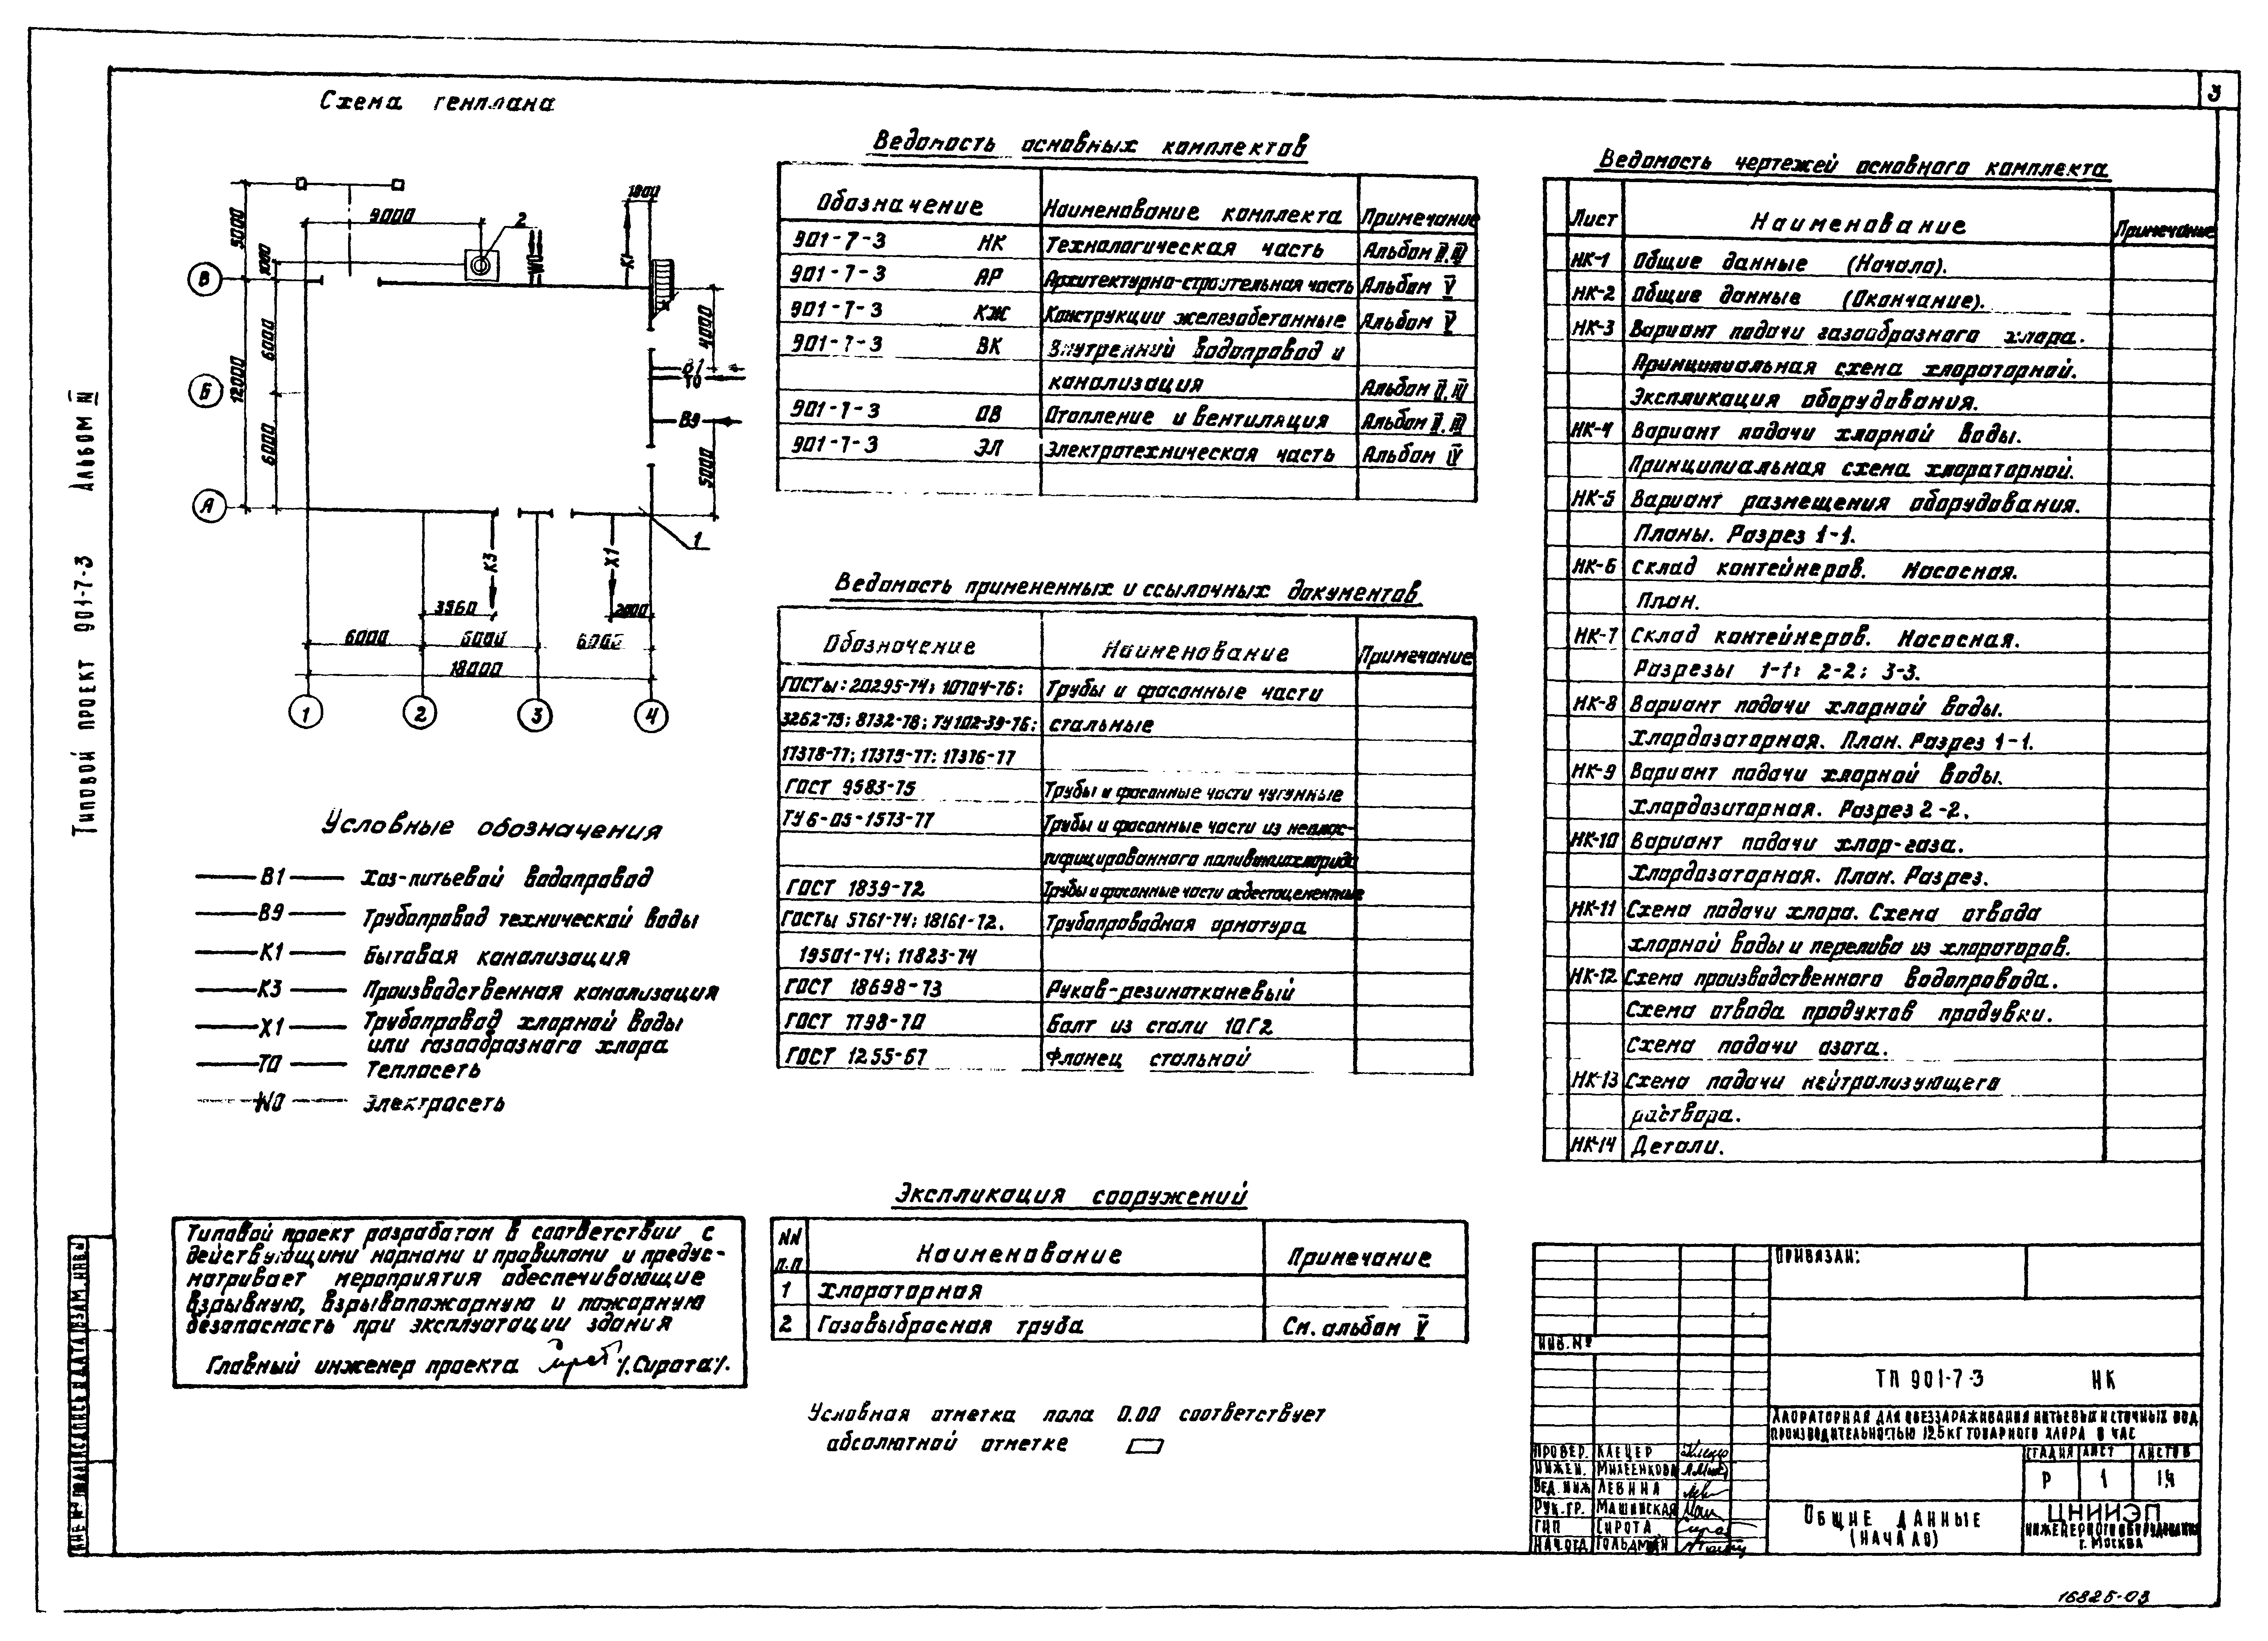 3
Типовой проект 901-7-3 Альбом
Схема генплана
3000
9000
2
1800
W0
К1
В
1000
6000
12000
Б
6000
А
4000
В1
Т0
В9
5000
1
К3
Х1
3960
2000
6000
6000
6000
18000
1
2
3
4
Условные обозначения
В1 Хоз-питьевой водопровод
В9 Трубопровод технической воды
К1 Бытовая канализация
К3 Производственная канализация
Х1 Трубопровод хлорной воды
или газообразного хлора
Т0 Теплосеть
W0 Электросеть
Типовой проект разработан в соответствии с
действующими нормами и правилами и предус-
матривает мероприятия обеспечивающие
взрывную, взрывопожарную и пожарную
безопасность при эксплуатации здания
Главный инженер проекта /.Сирота/.
Ведомость основных комплектов
Обозначение Наименование комплекта Примечание
901-7-3 НК Технологическая часть Альбом II.III
901-7-3 АР Архитектурно-строительная часть Альбом V
901-7-3 КЖ Конструкции железобетонные Альбом V
901-7-3 ВК Внутренний водопровод и
канализация Альбом II.III
901-7-3 ОВ Отопление и вентиляция Альбом II.III
901-7-3 ЭЛ Электротехническая часть Альбом IV
Ведомость примененных и ссылочных документов
Обозначение Наименование Примечание
ГОСТы: 20295-74; 10704-76; Трубы и фасонные части
3262-75; 8732-78; ТУ102-39-76; стальные
17378-77; 17375-77; 17376-77
ГОСТ 9583-75 Трубы и фасонные части чугунные
ТУ 6-05-1573-77 Трубы и фасонные части из неплас-
тифицированного поливинилхлорида
ГОСТ 1839-72 Трубы и фасонные части асбестоцементные
ГОСТы 5761-74; 18161-72. Трубопроводная арматура
19501-74; 11823-74
ГОСТ 18698-73 Рукав-резинотканевый
ГОСТ 7798-70 Болт из стали 10Г2
ГОСТ 1255-67 Фланец стальной
Экспликация сооружений
NN п.п Наименование Примечание
1 Хлораторная
2 Газовыбросная труба См. альбом V
Условная отметка пола 0.00 соответствует
абсолютной отметке
Ведомость чертежей основного комплекта
Лист Наименование Примечание
НК-1 Общие данные (Начало).
НК-2 Общие данные (Окончание).
НК-3 Вариант подачи газообразного хлора.
Принципиальная схема хлораторной.
Экспликация оборудования.
НК-4 Вариант подачи хлорной воды.
Принципиальная схема хлораторной.
НК-5 Вариант размещения оборудования.
Планы. Разрез 1-1.
НК-6 Склад контейнеров. Насосная.
План.
НК-7 Склад контейнеров. Насосная.
Разрезы 1-1; 2-2; 3-3.
НК-8 Вариант подачи хлорной воды.
Хлордозаторная. План. Разрез 1-1.
НК-9 Вариант подачи хлорной воды.
Хлордозаторная. Разрез 2-2.
НК-10 Вариант подачи хлор-газа.
Хлордозаторная. План. Разрез.
НК-11 Схема подачи хлора. Схема отвода
хлорной воды и перелива из хлораторов.
НК-12 Схема производственного водопровода.
Схема отвода продуктов продувки.
Схема подачи азота.
НК-13 Схема подачи нейтрализующего
раствора.
НК-14 Детали.
Привязан:
Инв.№
ТП 901-7-3 НК
Хлораторная для обеззараживания питьевых и сточных вод
производительностью 12,5 кг товарного хлора в час
Провер. Клецер
Инжен. Михеенкова
Вед. инж Левина
Рук. гр. Машинская
ГИП Сирота
Нач. отд Гольдман
Стадия Лист Листов
Р 1 14
Общие данные
(Начало)
ЦНИИЭП
инженерного оборудования
г. Москва
Инв № подл Подпись и дата Взам. инв №
16825-03